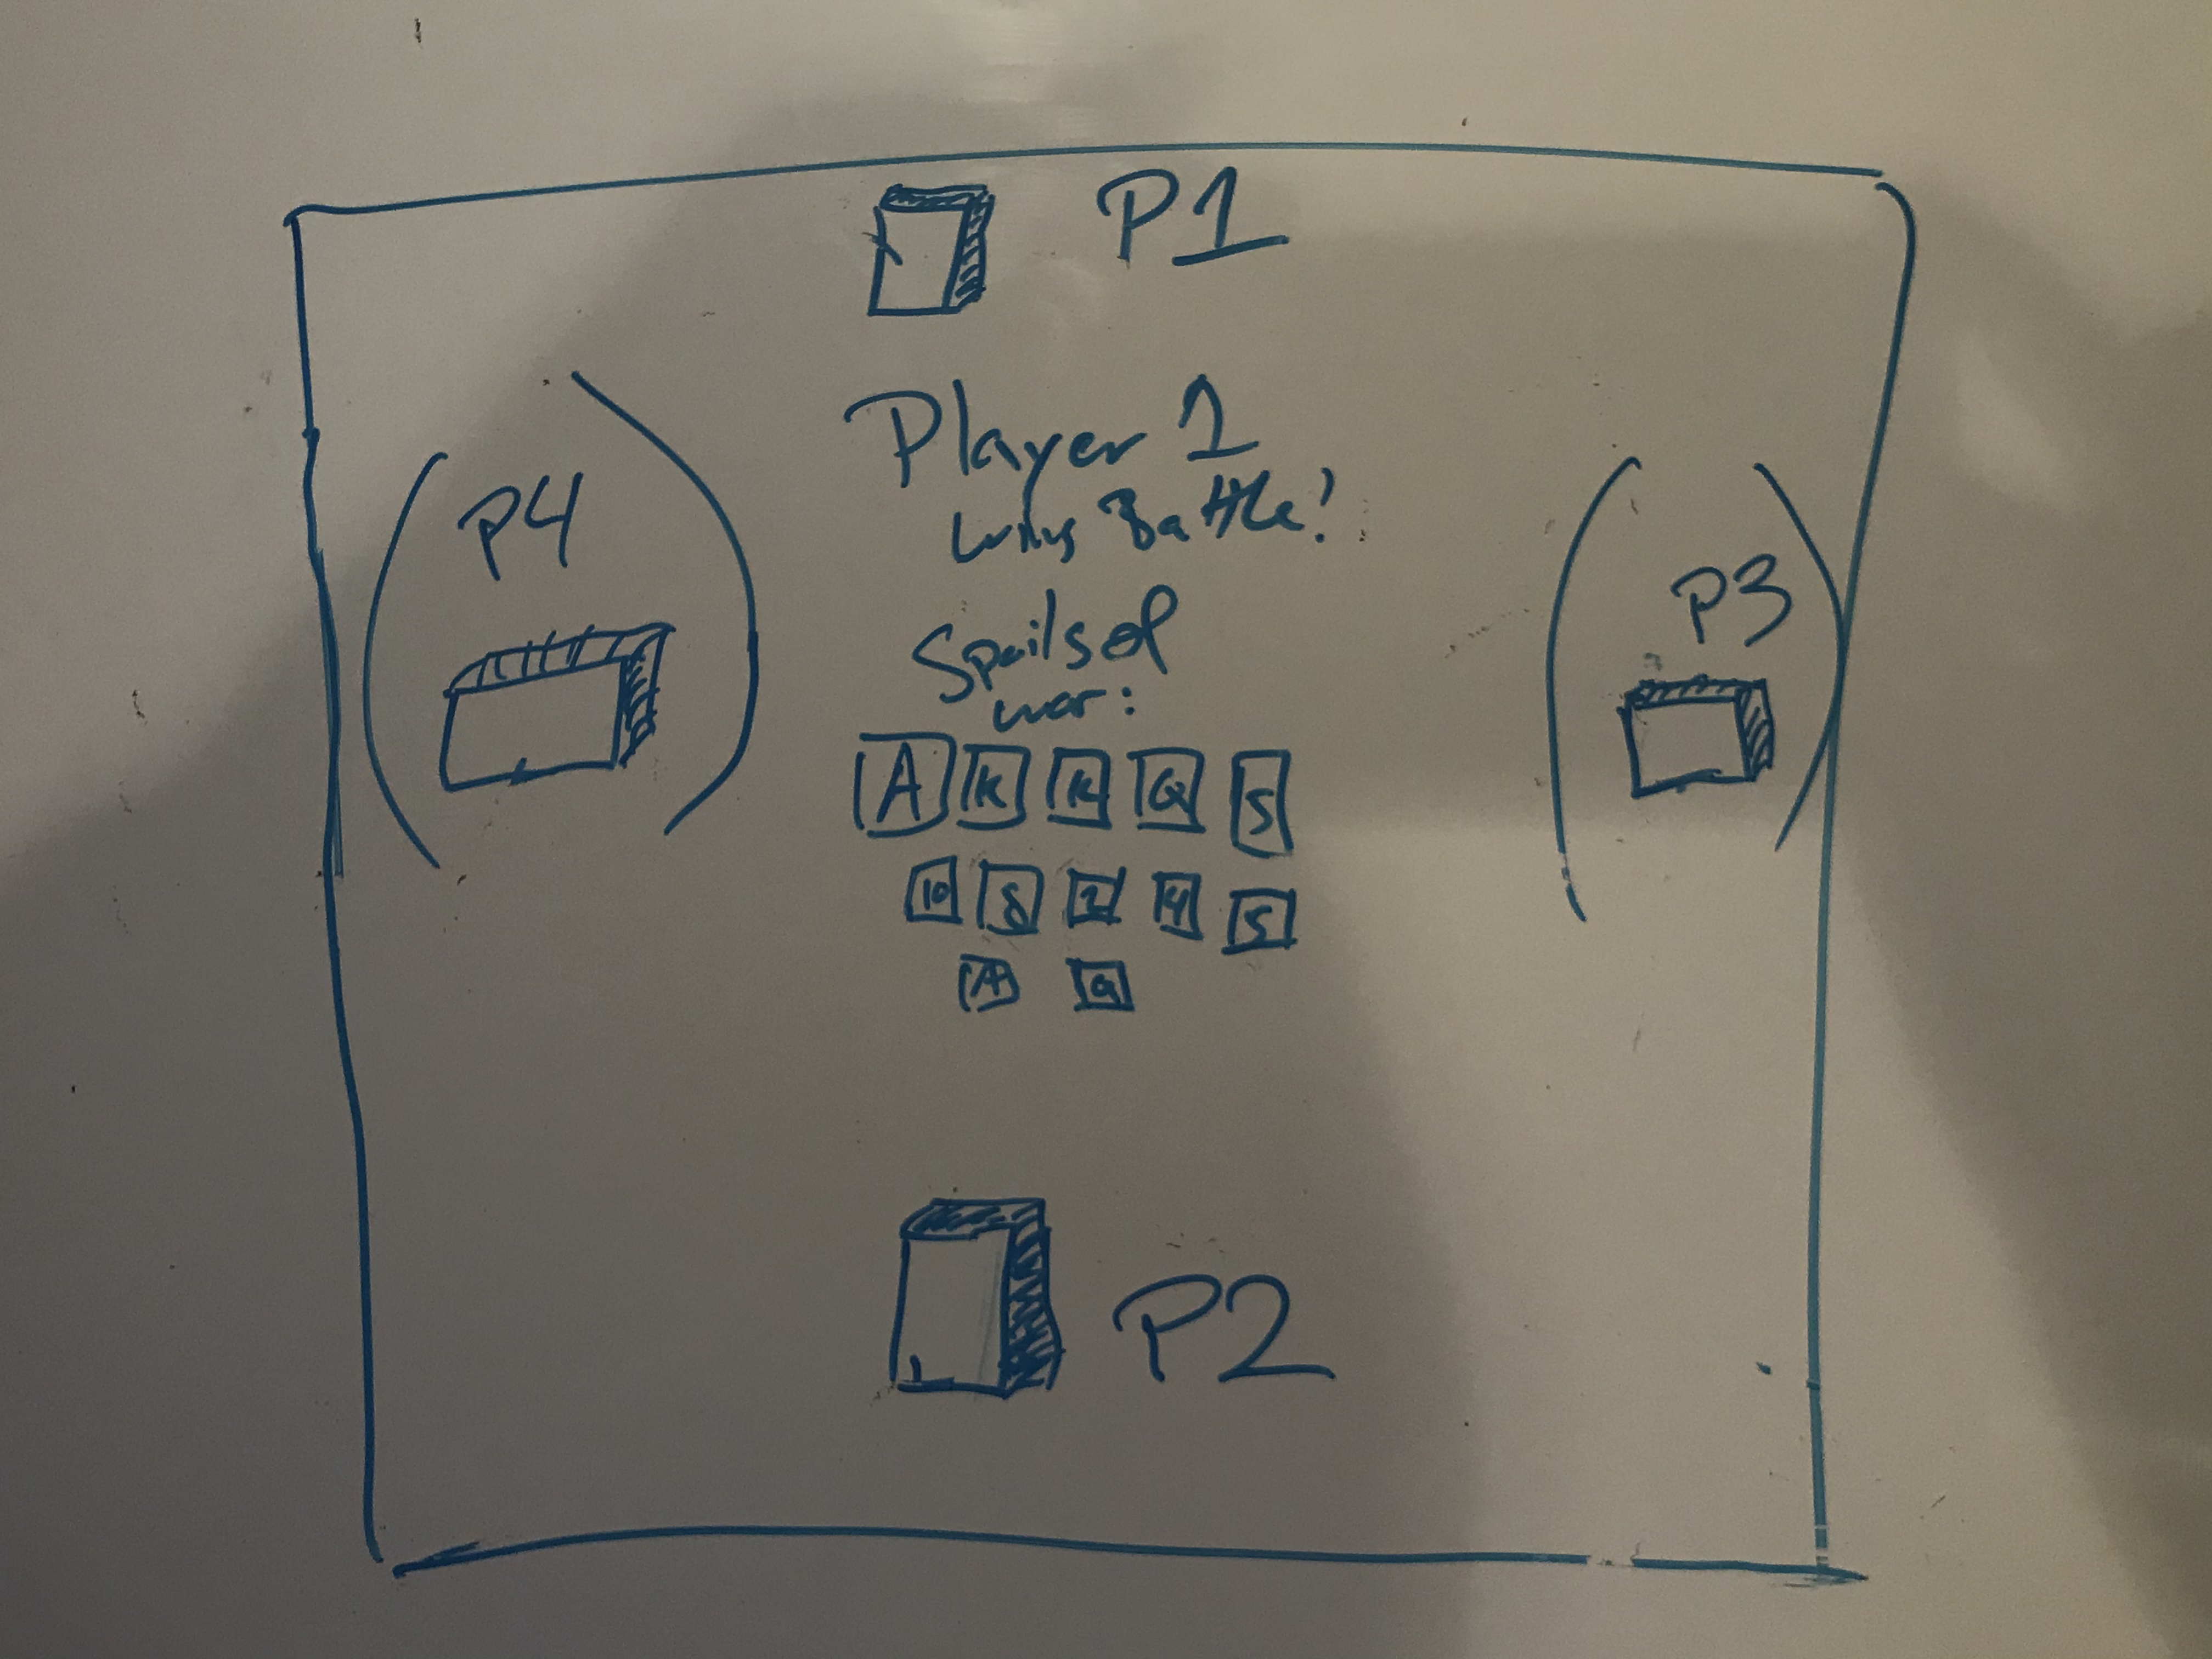 P1
Player 1
wins Battle!
P4
P3
Spoils of
war:
A K K Q 5
10 8 2 4 5
A Q
P2